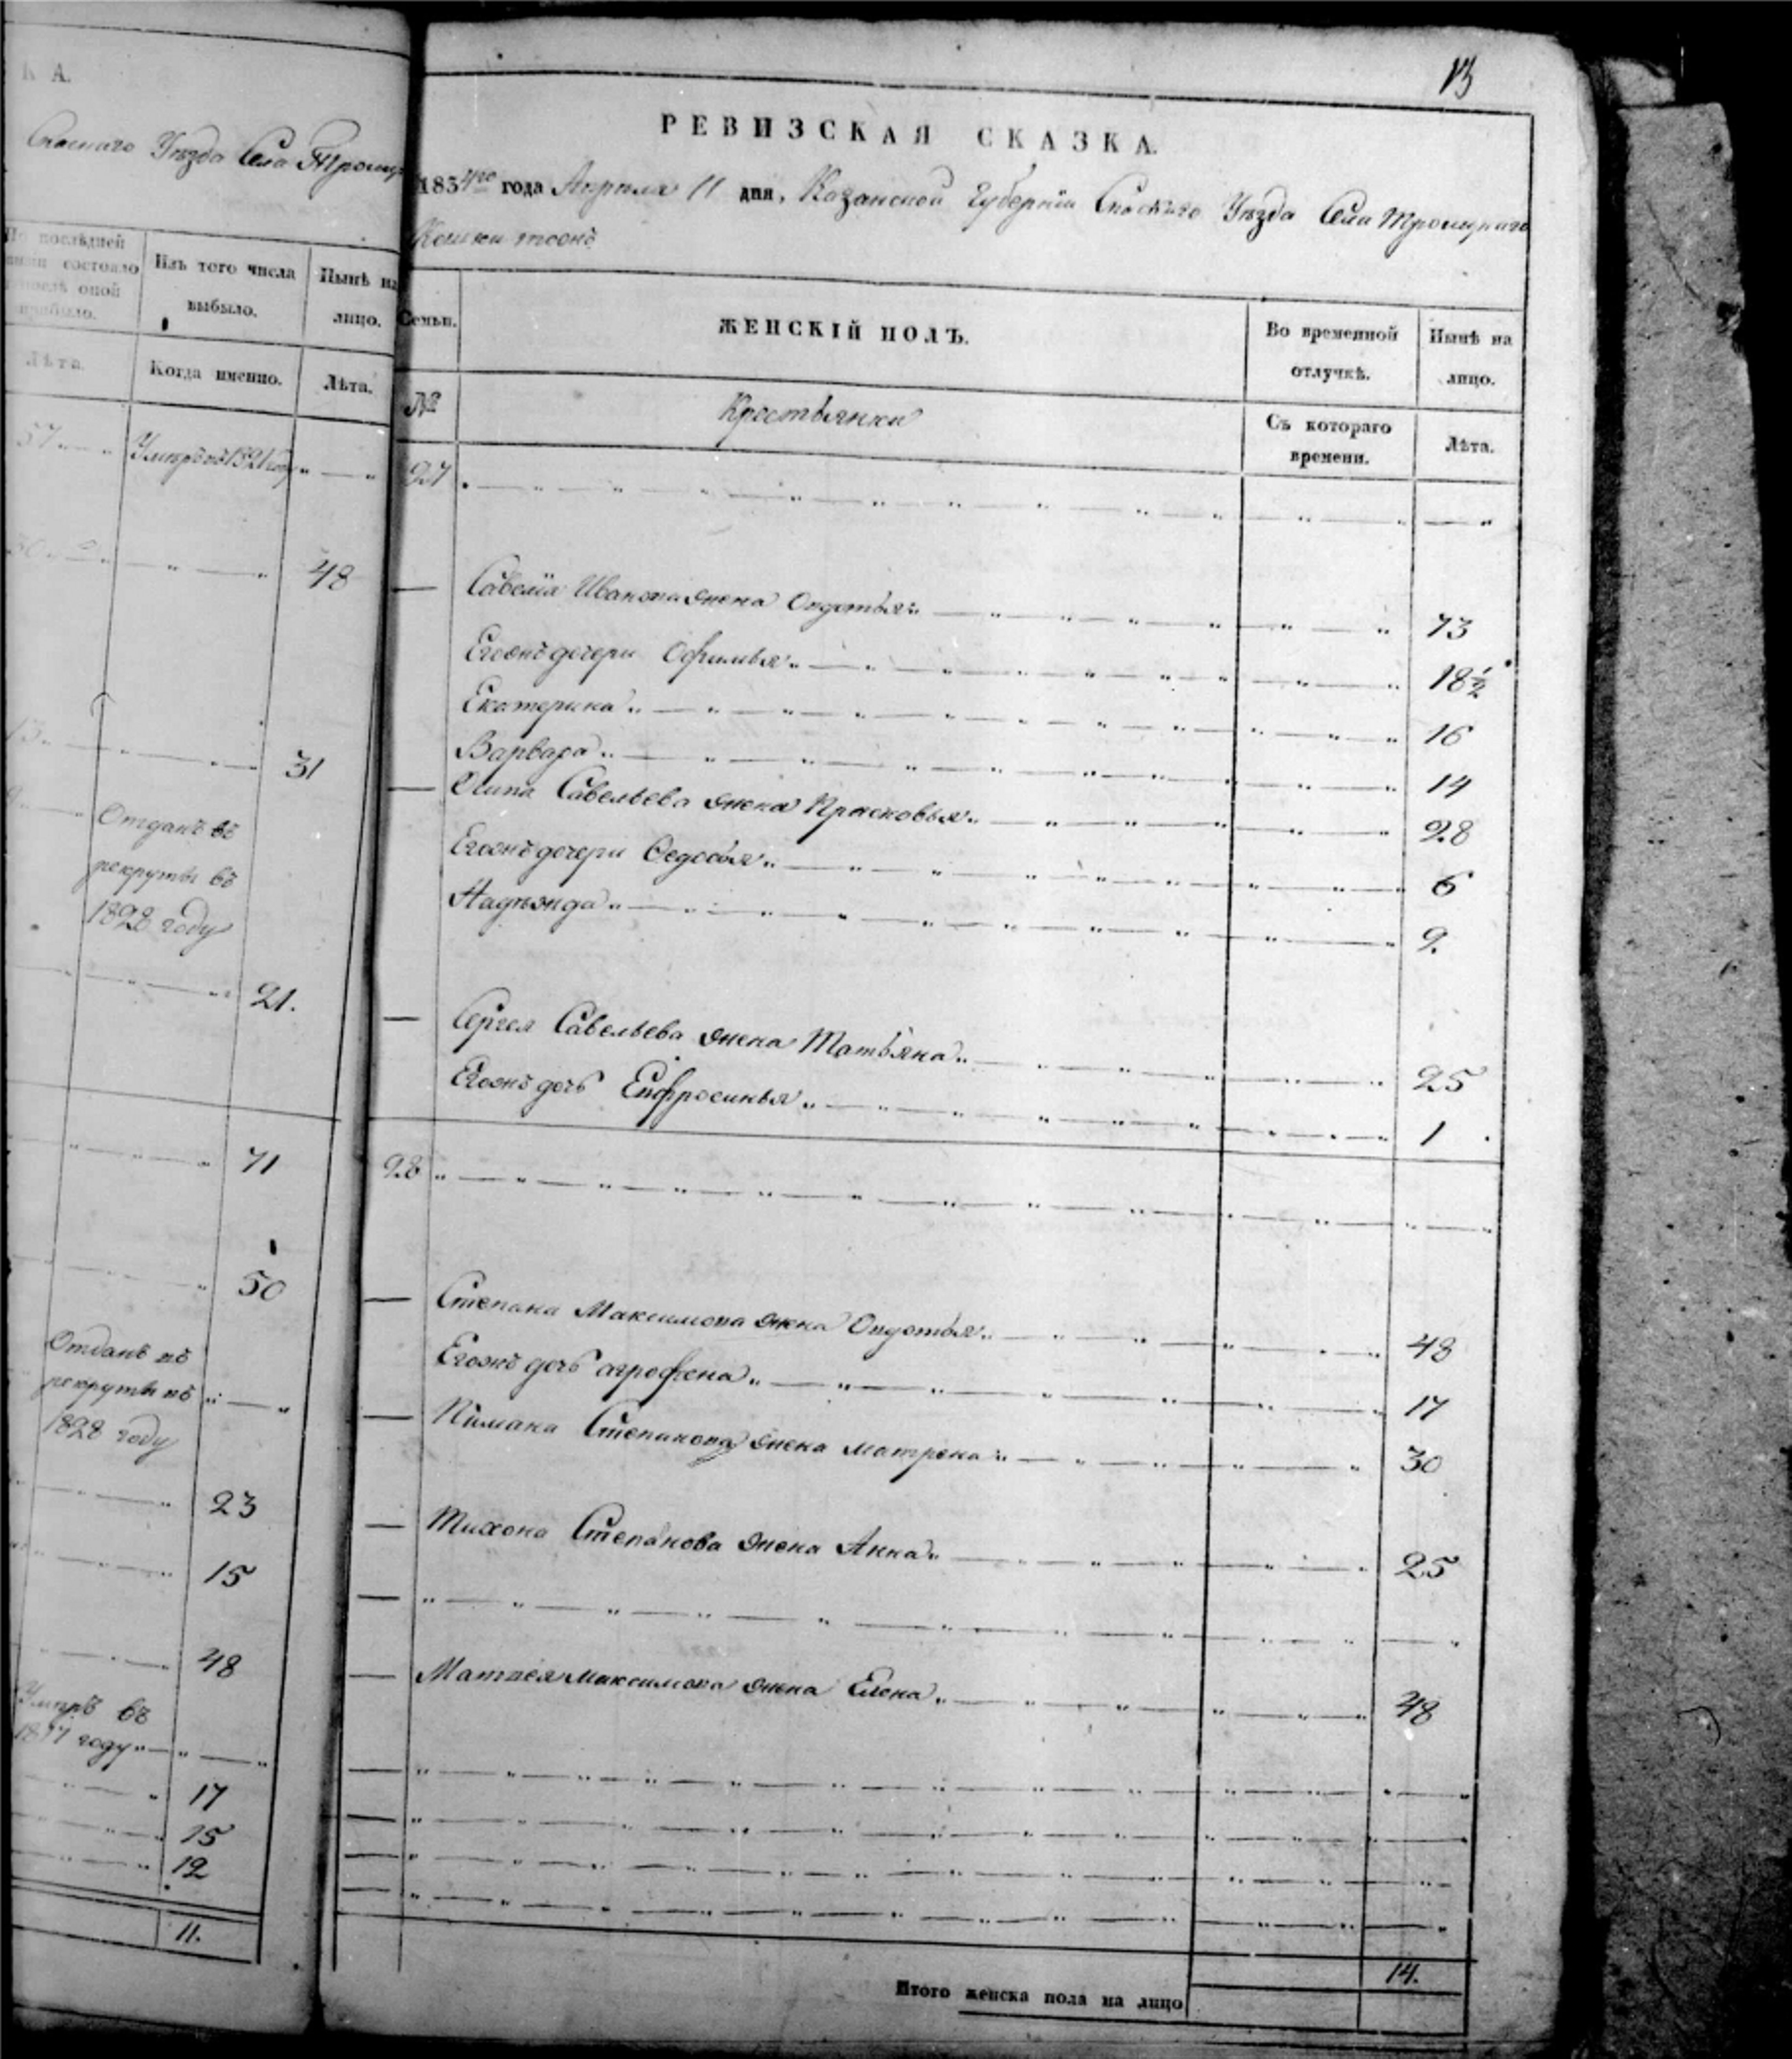 К А.
Спаскаго Уѣзда Села Троицк
По последней
состояло
послѣ оной
прибыло.
Изъ того числа
выбыло.
Нынѣ на
лицо.
Лѣта.
Когда именно.
Лѣта.
57
Умеръ въ 1821 году
48
31
Отданъ въ
рекруты въ
1828 году
21.
71
50
Отданъ въ
рекруты въ
1828 году
23
15
48
Умеръ въ
году
17
15
12
11.
13
РЕВИЗСКАЯ СКАЗКА.
1834го года Апреля 11 дня, Казанской Губернiи Спаскаго Уѣзда Села Троицкаго
Семьи.
ЖЕНСКIЙ ПОЛЪ.
Во временной
отлучкѣ.
Нынѣ на
лицо.
№
Крестьянки
Съ котораго
времени.
Лѣта.
27
Савелiя Иванова жена Овдотья 73
Егожъ дочери Офимья 18 1/2
Екатерина 16
Варвара 14
Осипа Савельева жена Прасковья 28
Егожъ дочери Федосья 6
Надежда 2
Сергея Савельева жена Татьяна 25
Егожъ дочь Ефросинья 1
28
Степана Максимова жена Овдотья 48
Егожъ дочь Агрофена 17
Пимана Степанова жена Матрена 30
Тихона Степанова жена Анна 25
Матвея Максимова жена Елена 48
14.
Итого женска пола на лицо